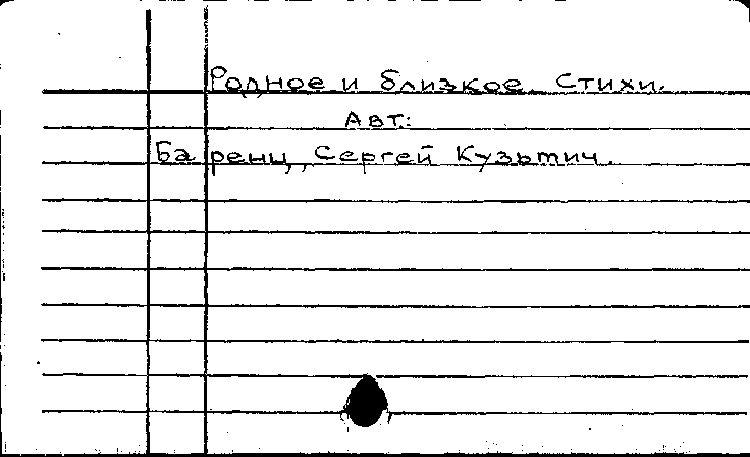 Родное и близкое. Стихи.
Авт.:
Баренц, Сергей Кузьмич.